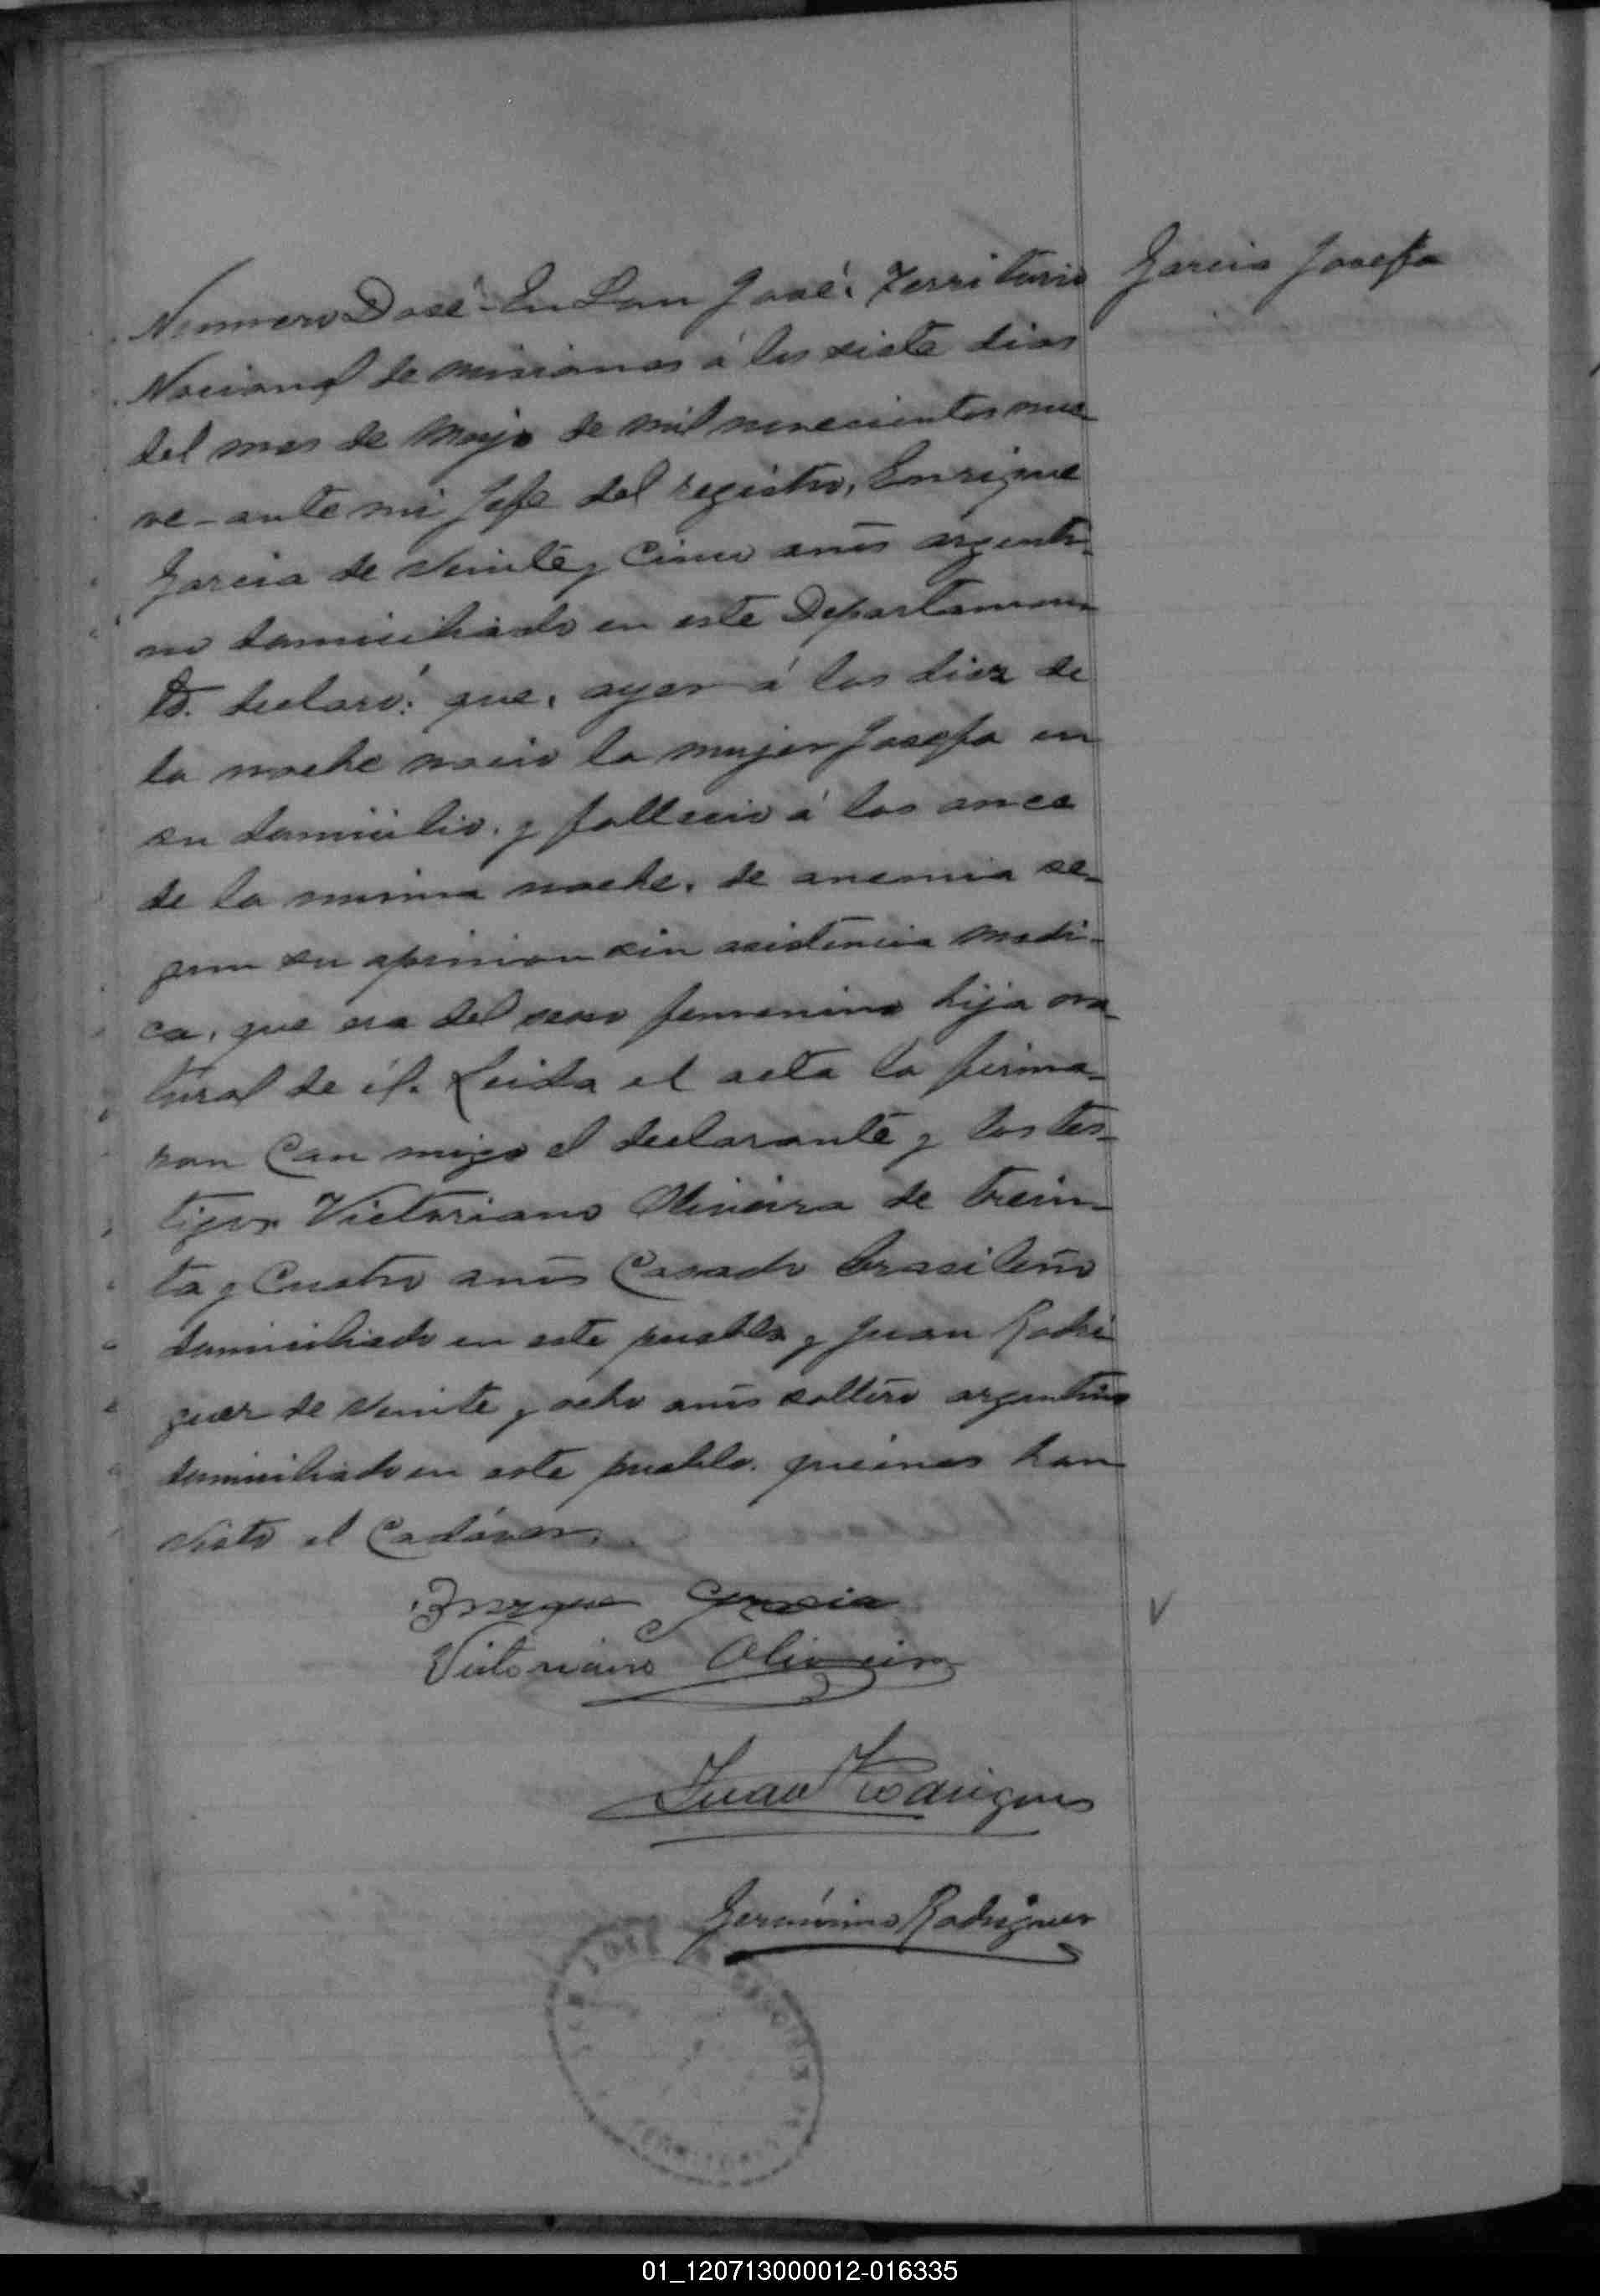 Garcia Josefa
Numero Dosé - En San José. Territorio
Nacional de misiones á los siete dias
del mes de Mayo de mil novecientos nue
ve - ante mi Jefe del registro, Enrique
Garcia de veinte y cinco años argenti-
no domiciliado en este Departamen-
to. declaró: que, ayer á las diez de
la noche nacio la mujer Josefa en
su domicilio. y fallecio á las once
de la misma noche. de anemia se-
gun su opinion sin asistencia medi-
ca, que era del sexo femenino hija na-
tural de él. Leida el acta la firma-
ron Con migo el declarante y los tes-
tigos Victoriano Oliveira de trein-
ta y Cuatro años Casado brasileño
domiciliado en este pueblo y Juan Rodri
guez de veinte y ocho años soltero argentino
domiciliado en este pueblo. quienes han
visto el Cadáver.
Enrique Garcia
Victoriano Oliveira
Juan Rodrigues
Gerónimo Rodriguez
01_120713000012-016335